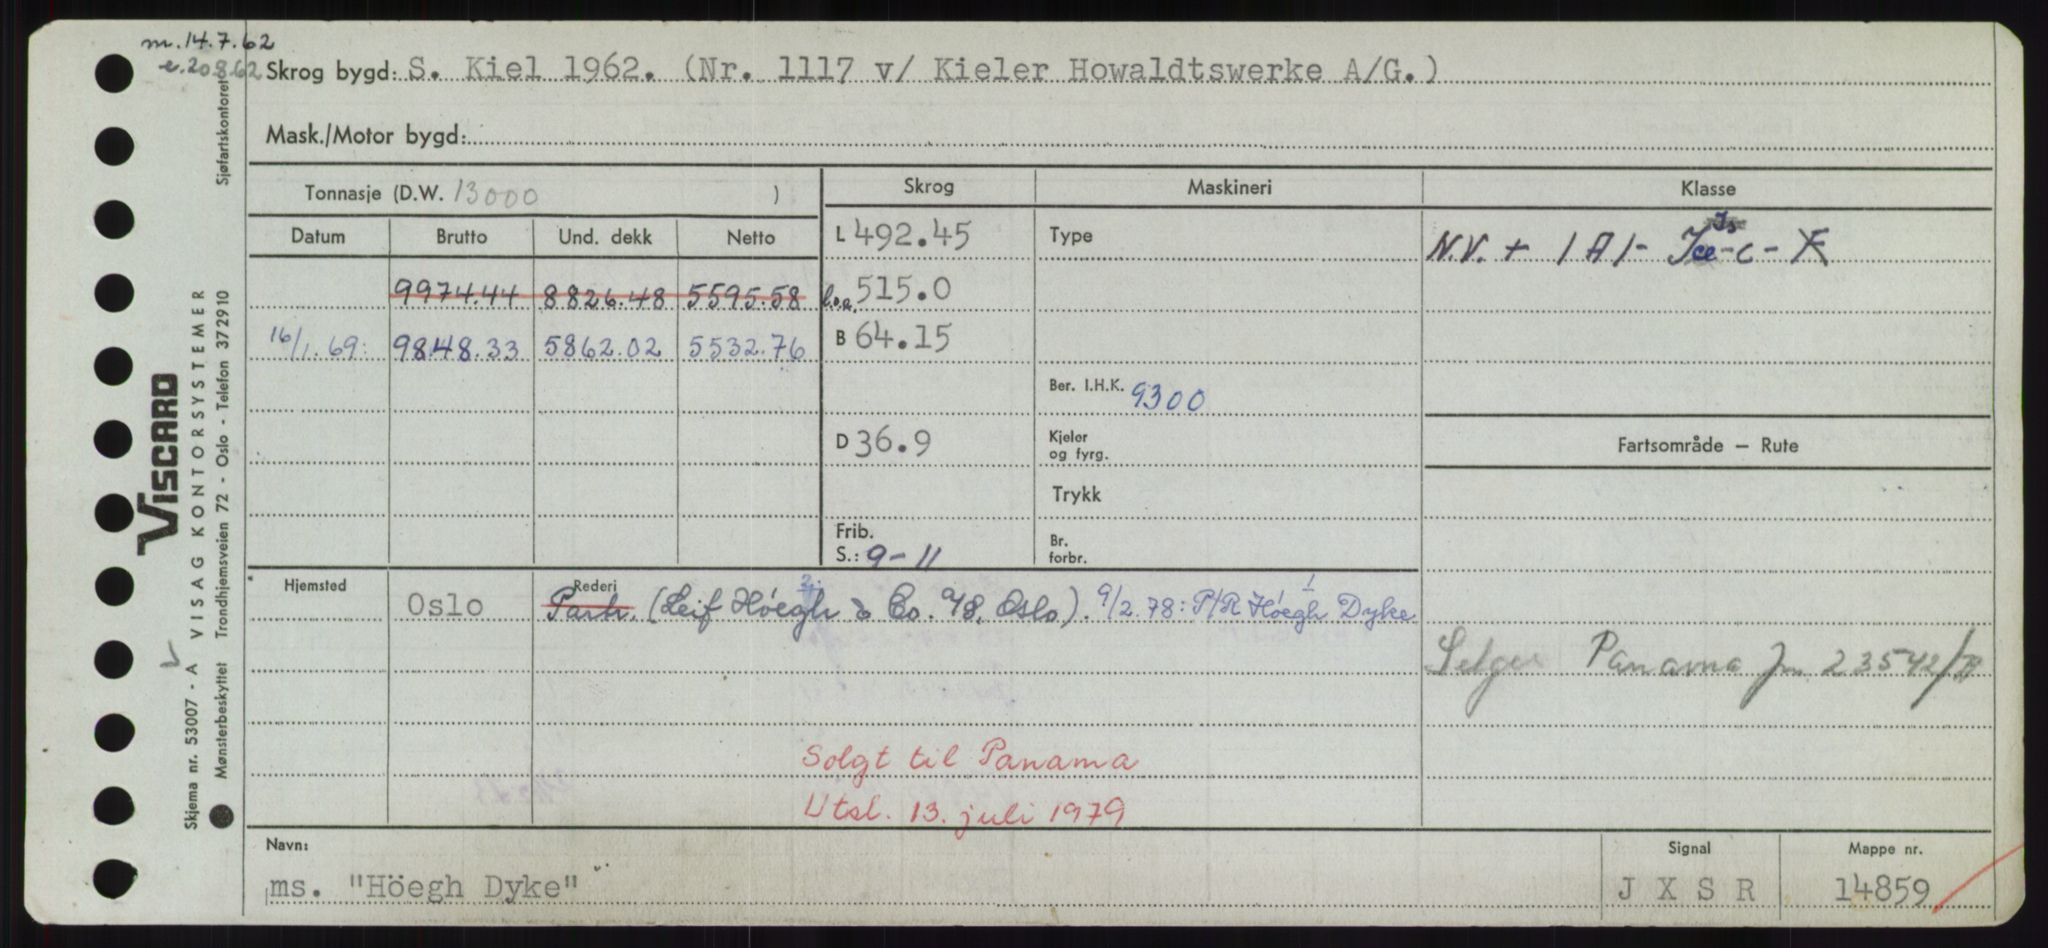 m. 14.7.62
e. 20.8.62
Skrog bygd: S. Kiel 1962. (Nr. 1117 v/ Kieler Howaldtswerke A/G.)
Mask./Motor bygd:
Tonnasje (D.W. 13000 )
Skrog
Maskineri
Klasse
Datum
Brutto
Und. dekk
Netto
L 492.45
Type
N.V. + 1A1-
9974.44 8826.48 5595.58
l.o.a. 515.0
16/1.69: 9848.33 5862.02 5532.76
B 64.15
Ber. I.H.K. 9300
D 36.9
Kjeler
og fyrg.
Fartsområde — Rute
Trykk
Frib.
S.: 9-11
Br.
forbr.
Hjemsted
Rederi
Oslo
Partr. (Leif Höegh & Co. A/S, Oslo). 9/2.78: P/R Höegh Dyke
Panama Jnr. 23542/
Solgt til Panama
Utsl. 13. juli 1979
Navn:
Signal
Mappe nr.
ms. "Höegh Dyke"
J X S R
14859
VISCARD
Skjema nr. 53007 - A VISAG KONTORSYSTEMER
Mønsterbeskyttet Trondhjemsveien 72 - Oslo - Telefon 372910 Sjøfartskontoret